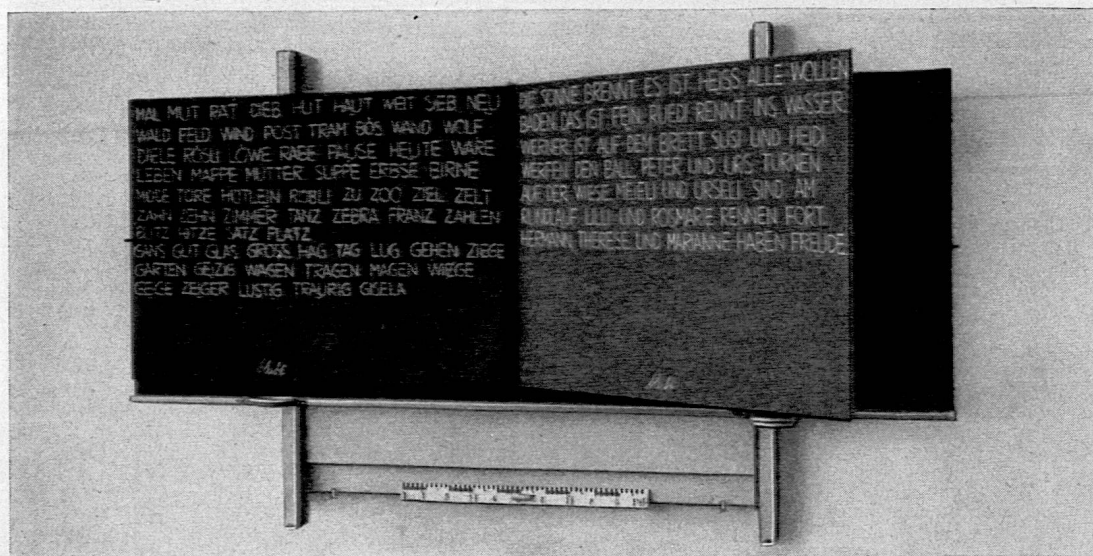 MAL MUT RAT DIEB HUT HAUT WEIT SIEB NEU
WALD FELD WIND POST TRAM BÖS WAND WOLF
DIELE RÖSLI LÖWE RABE PAUSE HEUTE WARE
LEBEN MAPPE MUTTER SUPPE ERBSE BIRNE
TORE HÜTLEIN ZU ZOO ZIEL ZELT
ZAHN ZEHN ZIMMER TANZ ZEBRA FRANZ ZAHLEN
BLITZ HITZE SATZ PLATZ
GANS GUT GLAS GROSS HAG TAG LUG GEHEN ZIEGE
GARTEN GEIZIG WAGEN TRAGEN MAGEN WIEGE
GEIGE ZEIGER LUSTIG TRAURIG GISELA
DIE SONNE BRENNT. ES IST HEISS. ALLE WOLLEN
BADEN. DAS IST FEIN. RUEDI RENNT INS WASSER.
WERNER IST AUF DEM BRETT. SUSI UND HEIDI
WERFEN DEN BALL. PETER UND URS TURNEN
AUF DER WIESE. UND URSELI SIND AM
RUNDLAUF. LILLI UND ROSMARIE RENNEN FORT.
HERMANN, THERESE UND MARIANNE HABEN FREUDE.